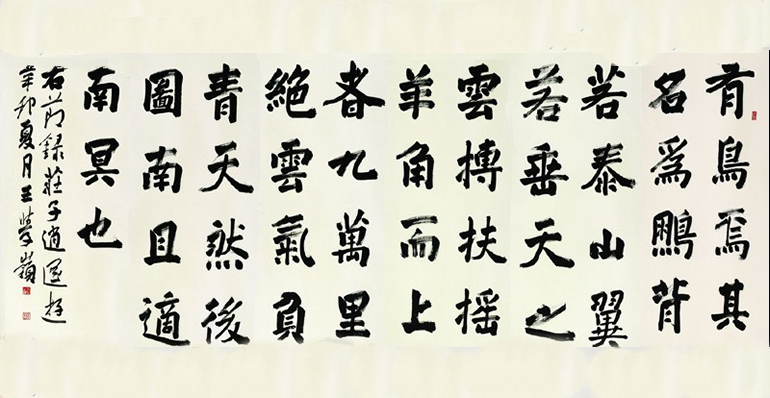 有鳥焉其
名爲鵬背
若泰山翼
若垂天之
雲摶扶摇
羊角而上
者九萬里
絶雲氣負
青天然後
圖南且適
南冥也
右節録莊子逍遥遊
辛卯夏月王